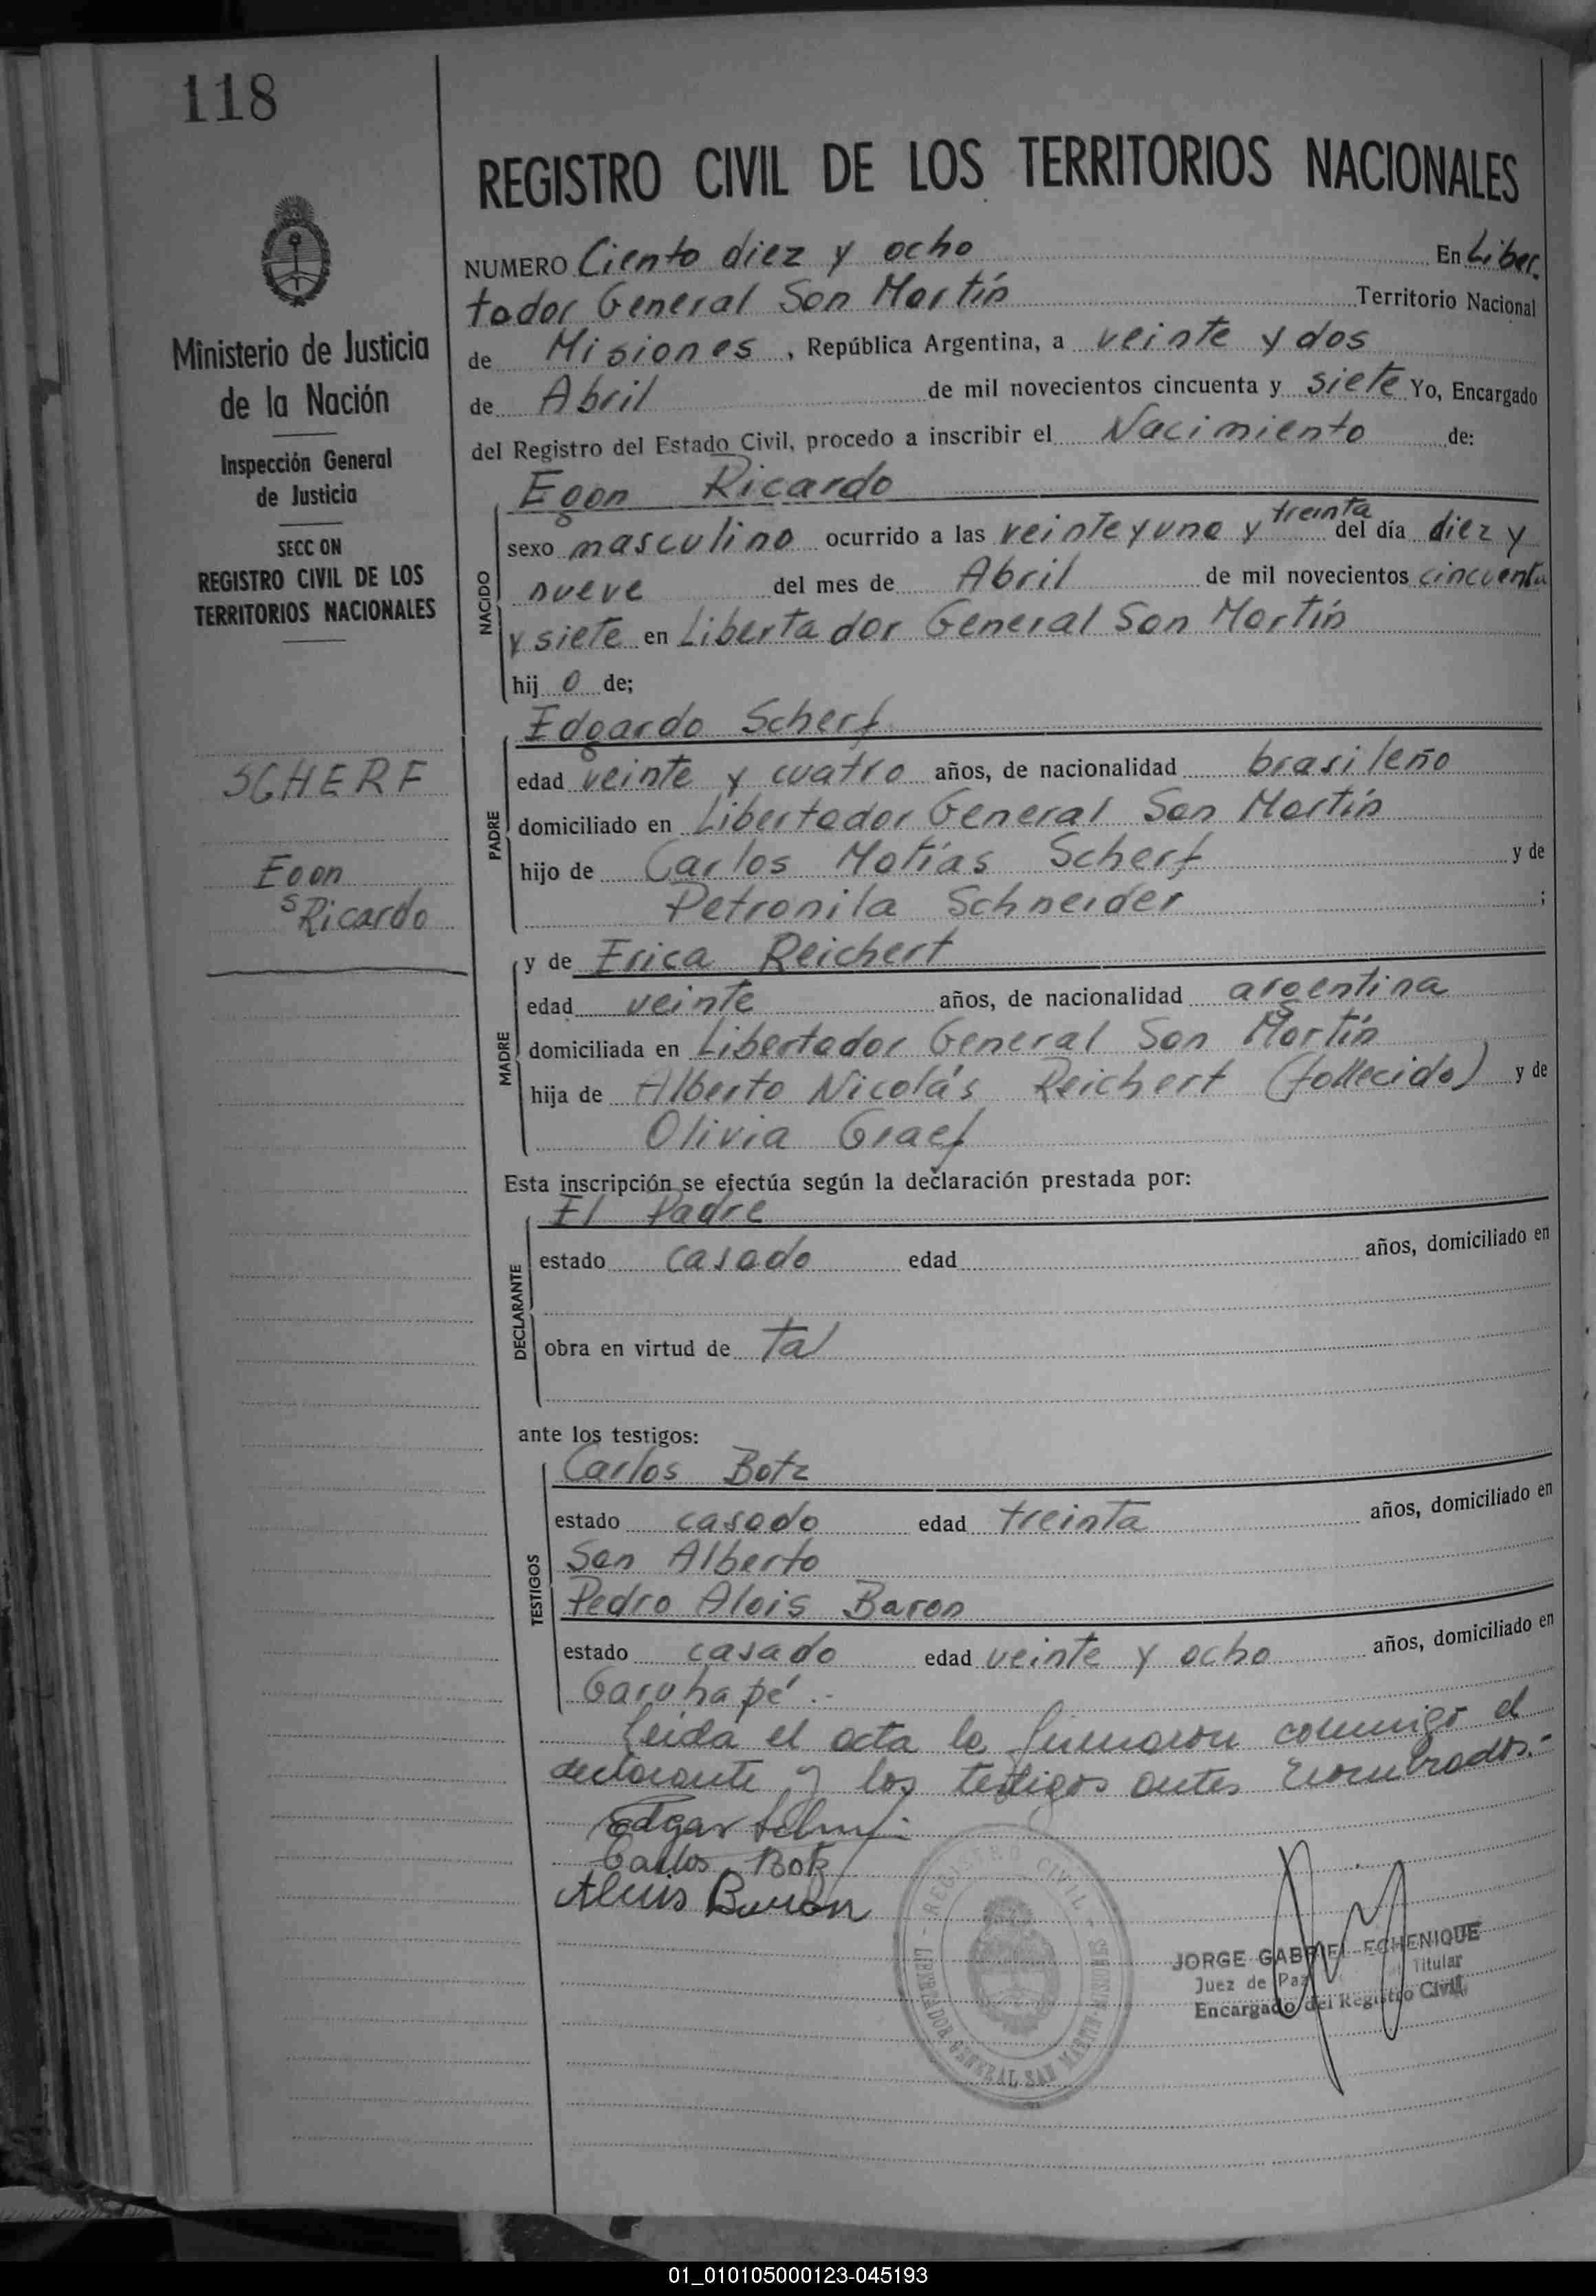 118
Ministerio de Justicia
de la Nación
Inspección General
de Justicia
SECC ON
REGISTRO CIVIL DE LOS
TERRITORIOS NACIONALES
SCHERF
Egon
Ricardo
REGISTRO CIVIL DE LOS TERRITORIOS NACIONALES
NUMERO Ciento diez y ocho En Liber
tador General San Martín Territorio Nacional
de Misiones, República Argentina, a veinte y dos
de Abril de mil novecientos cincuenta y siete Yo, Encargado
del Registro del Estado Civil, procedo a inscribir el Nacimiento de:
Egon Ricardo
NACIDO
sexo masculino ocurrido a las veinte y una y treinta del día diez y
nueve del mes de Abril de mil novecientos cincuenta
y siete en Libertador General San Martín
hijo de;
Edgardo Scherf
PADRE
edad veinte y cuatro años, de nacionalidad brasileño
domiciliado en Libertador General San Martín
hijo de Carlos Matías Scherf y de
Petronila Schneider ;
y de Erica Reichert
MADRE
edad veinte años, de nacionalidad argentina
domiciliada en Libertador General San Martín
hija de Alberto Nicolás Reichert (fallecido) y de
Olivia Graef
Esta inscripción se efectúa según la declaración prestada por:
El Padre
DECLARANTE
estado casado edad años, domiciliado en
obra en virtud de tal
ante los testigos:
Carlos Botz
TESTIGOS
estado casado edad treinta años, domiciliado en
San Alberto
Pedro Alois Baron
estado casado edad veinte y ocho años, domiciliado en
Garuhapé.-
Leida el acta la firmaron conmigo el
declarante y los testigos antes nombrados.-
Edgar Scherf
Carlos Botz
Alois Baron
REGISTRO CIVIL
LIBERTADOR GENERAL SAN MARTIN MISIONES
JORGE GABRIEL ECHENIQUE
Juez de Paz Titular
Encargado del Registro Civil
01_010105000123-045193